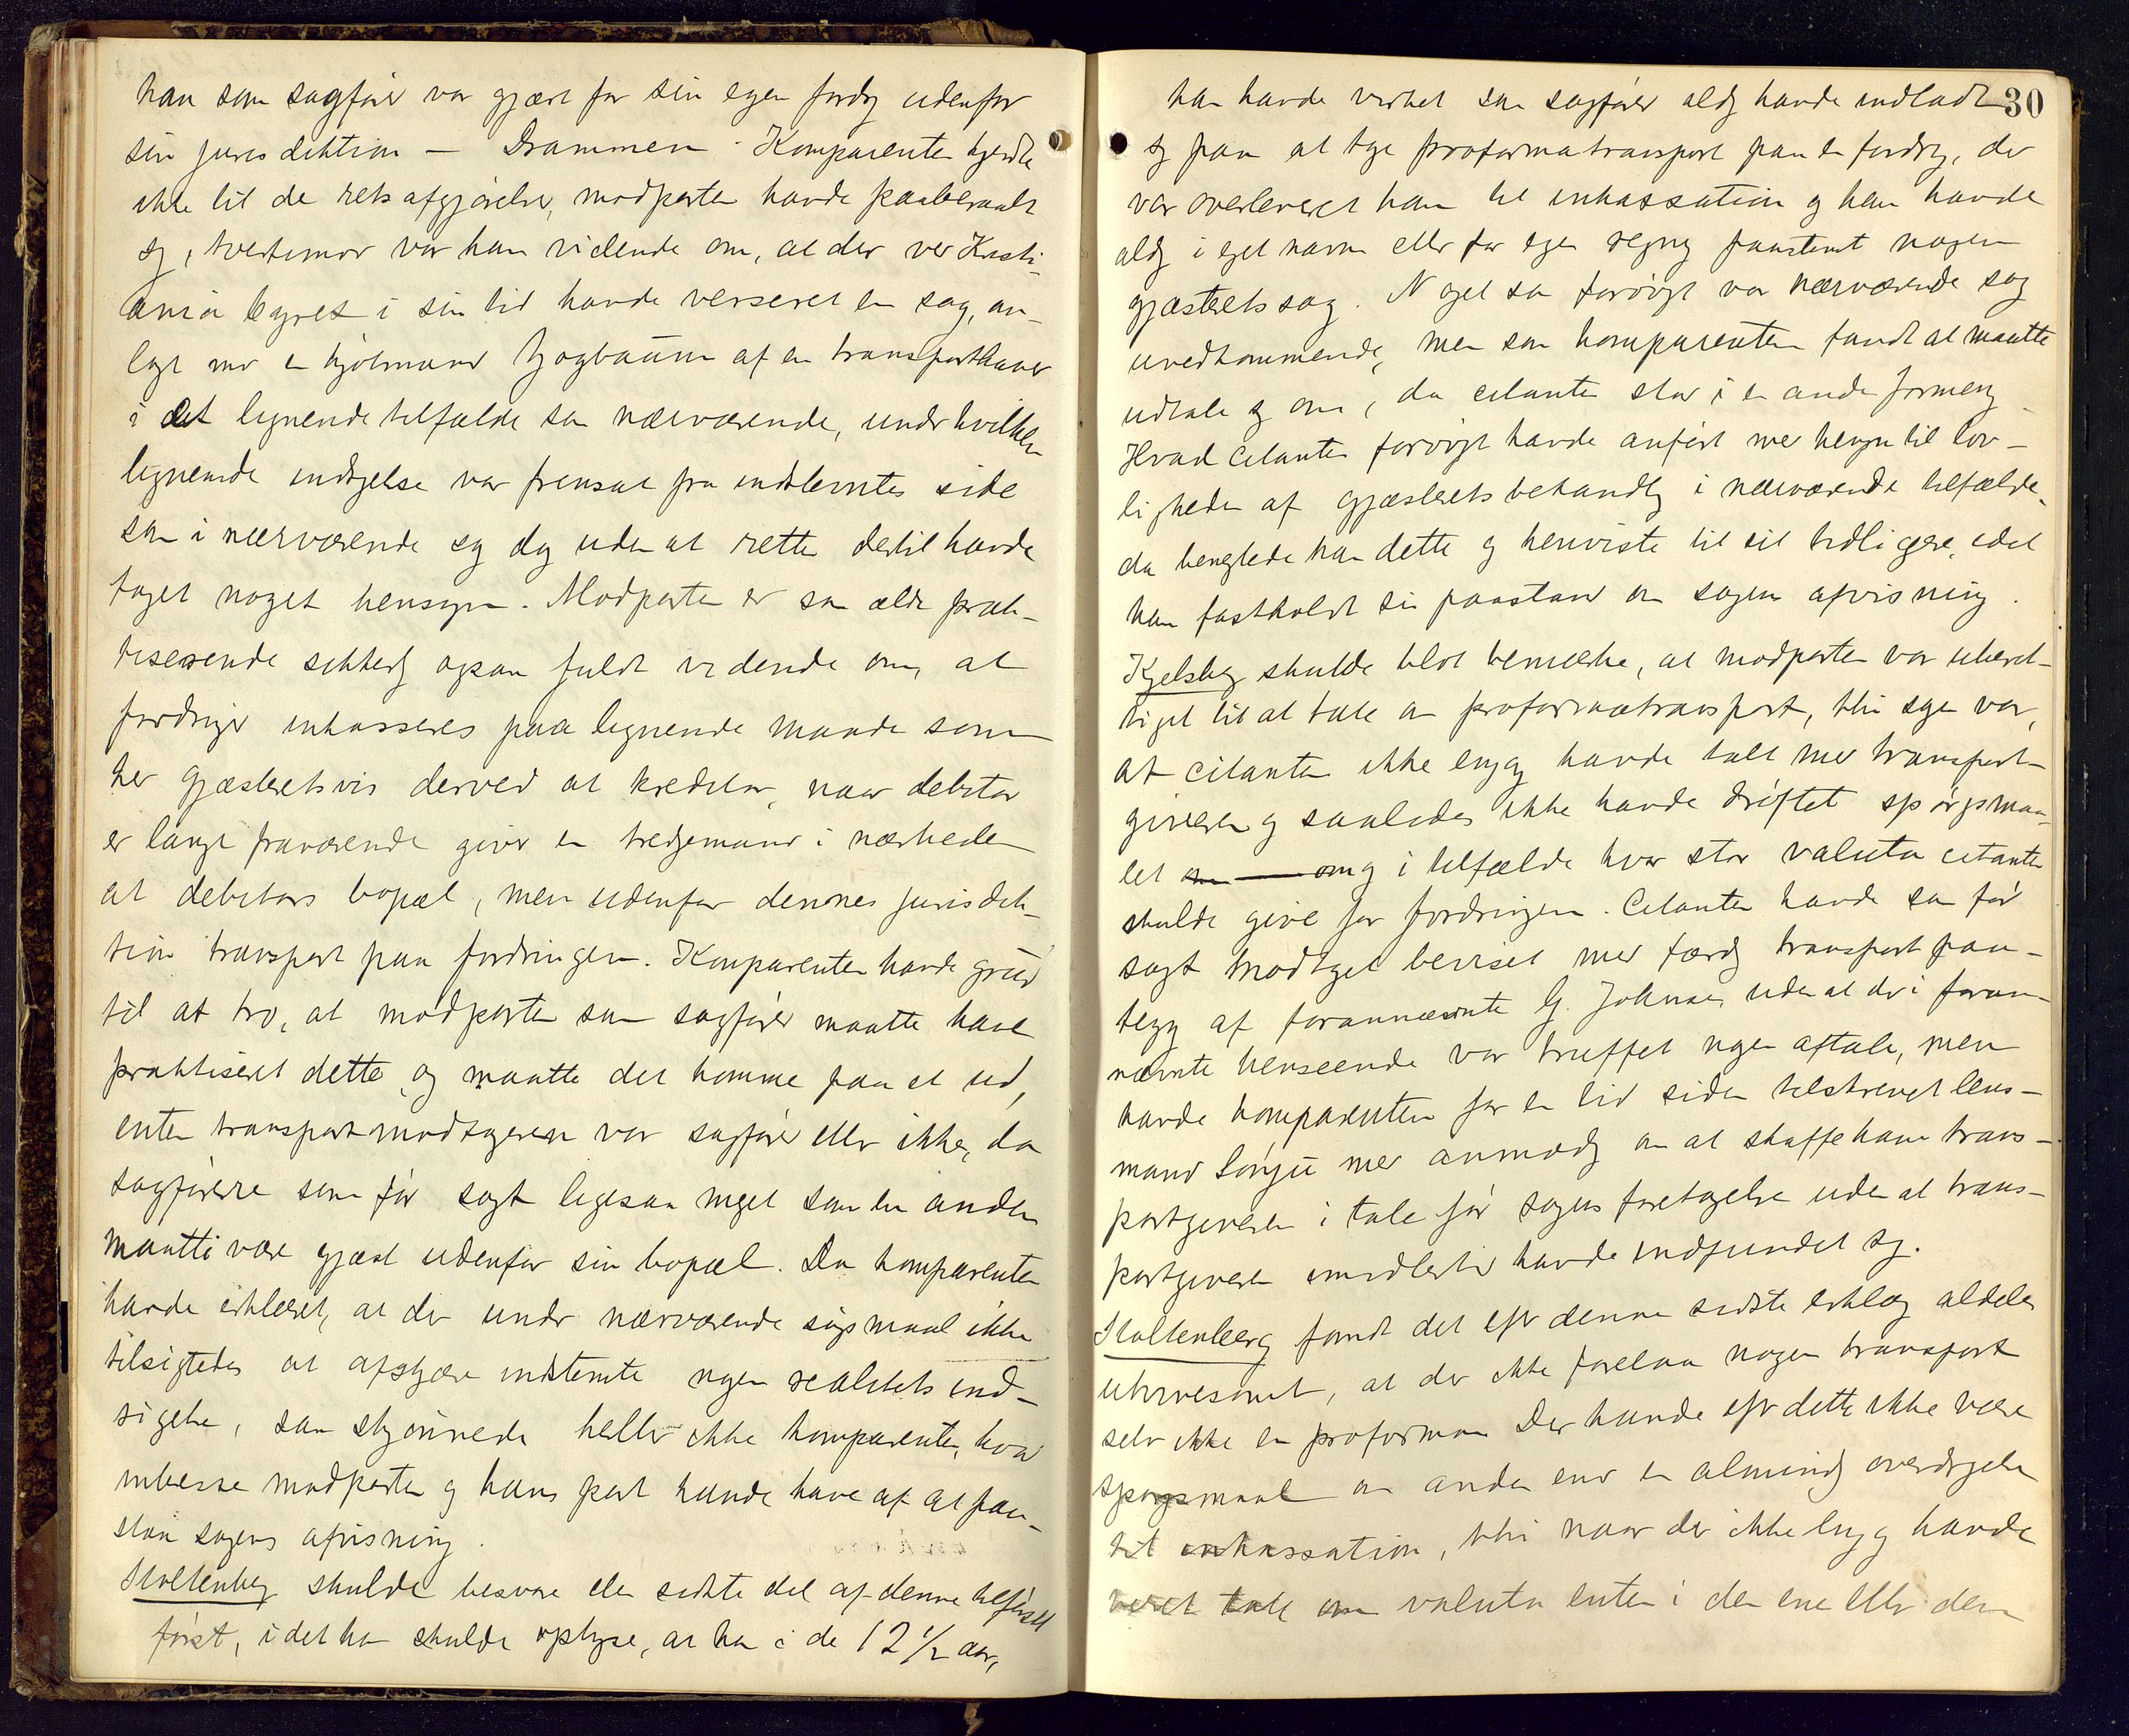 han som sagfører var gjæst for sin egen fordrg udenfor
sin jurisdiktion — Drammen. Komparenten kjendte
ikke til de retsafgjørelser, modparten havde paaberaabt
sig, tvertimod var han vidende om, at der ved Kristi-
ania byret i sin tid havde verseret en sag, an-
lagt mod en kjøbmand Hjogbaum af en transporthaver
i et lignende tilfælde som nærværende, under hvilken
lignende indsigelse var fremsat fra indstevntes side
som i nærværende sag dog uden at retten dertil havde
taget noget hensyn. Modparten er som ældre prak-
tiserende sikkerlg ogsaa fuldt vidende om, at
fordringer inkasseres paa lignende maade som
her gjæsteretsvis derved at kreditor, naar debitor
er langt fraværende giver en tredjemand i nærheden
af debitors bopæl, men udenfor dennes jurisdik-
tion transport paa fordringen. Komparenten havde grund
til at tro, at modparten som sagfører maatte have
praktiseret dette, og maatte det komme paa et ud,
enten transportmodtageren var sagfører eller ikke, da
sagførere som før sagt ligesaa meget som en anden
maatte være gjæst udenfor sin bopæl. Da komparenten
havde erklæret, at der under nærværende søgsmaal ikke
tilsigtedes at afskjære indstevnte nogen realitetsind-
sigelse, saa skjønnede heller ikke komparenten, hvad
interesse modparten og hans part kunde have af at paa-
staa sagens afvisning.
Stoltenberg skulde besvare den sidste del af denne tilførsel
først, idet han skulde oplyse, at han i de 12 1/2 aar,
30
han havde virket som sagfører aldrig havde indladt
sig paa at tage proformatransport paa en fordrg, der
var overleveret ham til inkassation og han havde
aldrig i eget navn eller for egen regng paastevnt nogen
gjæsteretssag. Noget som forøvrigt var nærværende sag
uvedkommende, men som komparenten fandt at maatte
udtale sig om, da citanten staar i en anden formeng
Hvad citanten forøvrigt havde anført med hensyn til lov-
ligheden af gjæsteretsbehandlg i nærværende tilfælde,
da benegtede han dette og henviste til sit tidligere, idet
han fastholdt sin paastand om sagens afvisning.
Kjelsberg skulde blot bemærke, at modparten var uberet-
tiget til at tale om proformatransport, thi sagen var,
at citanten ikke engang havde talt med transport-
giveren og saaledes ikke havde drøftet spørgsmaa-
let om og i tilfælde hvor stor valuta citanten
skulde give for fordringen. Citanten havde som før
sagt modtaget beviset med færdig transportpaa-
tegng af forannævnte G. Johnsen uden at der i foran-
nævnte henseende var truffet nogen aftale, men
havde komparenten for en tid siden tilskrevet lens-
mand Sørgu med anmodg om at skaffe ham trans-
portgiveren i tale før sagens foretagelse uden at trans-
portgiveren imidlertid havde indfundet sig.
Stoltenberg fandt det efter denne sidste erklærg aldeles
utvivlsomt, at der ikke forelaa nogen transport
selv ikke en proforma. Der kunde efter dette ikke være
spørgsmaal om anden end en almindlg overdragelse
til inkassation, thi naar der ikke engang havde
været tale om valuta enten i den ene eller den